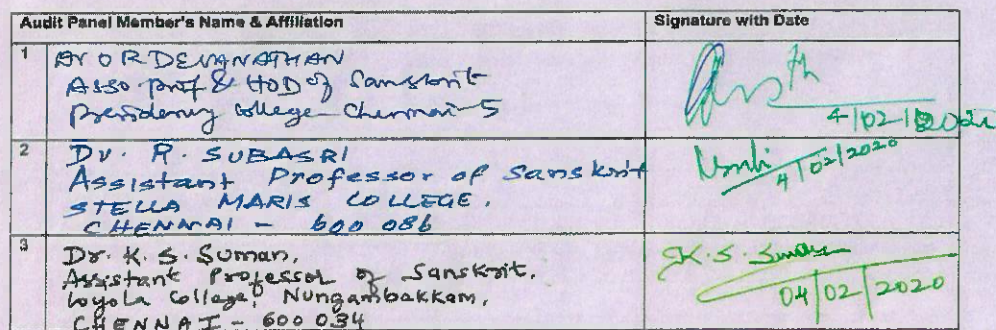 Audit Panel Member's Name & Affiliation
Signature with Date
1
DEVANATHAN
Asso. prof & HOD of Sanskrit
Presidency College Chennai-5
4/02/2020
2
Dr. R. SUBASRI
Assistant Professor of Sanskrit
STELLA MARIS COLLEGE,
CHENNAI - 600 086
4/02/2020
3
Dr. K. S. Suman,
Assistant Professor of Sanskrit,
Loyola College, Nungambakkam,
CHENNAI - 600 034
K.S. Suman
04/02/2020